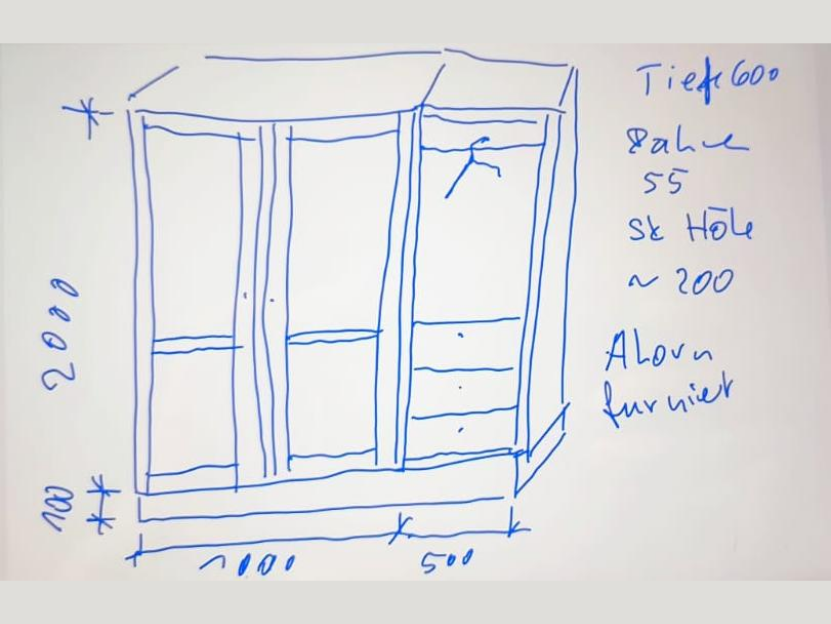 Tiefe 600
Rahme
55
Sk Höhe
~ 200
Ahorn
furniert
2000
100
1000
500